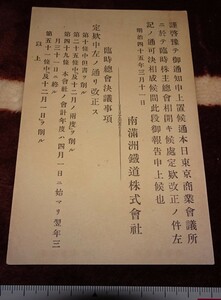 謹啓豫テ御通知申上置候通本日東京商業會議所
ニ於テ臨時株主總會相開キ候處定欵改正ノ件左
記ノ通可決相成候間此段御報告申上候也
明治四十五年三月三十一日
南滿洲鐵道株式會社
臨時總會決議事項
定欵中左ノ通リ改正ス
第十條中四書ヲ削ル
第二十五條中及十二月ノ五度ヲ削ル
第四十九條 本會社ノ會計年度ハ四月一日ニ始マリ翌年三
月三十一日ニ終ル
第五十一條中及十二月一日ヲ削ル
以上